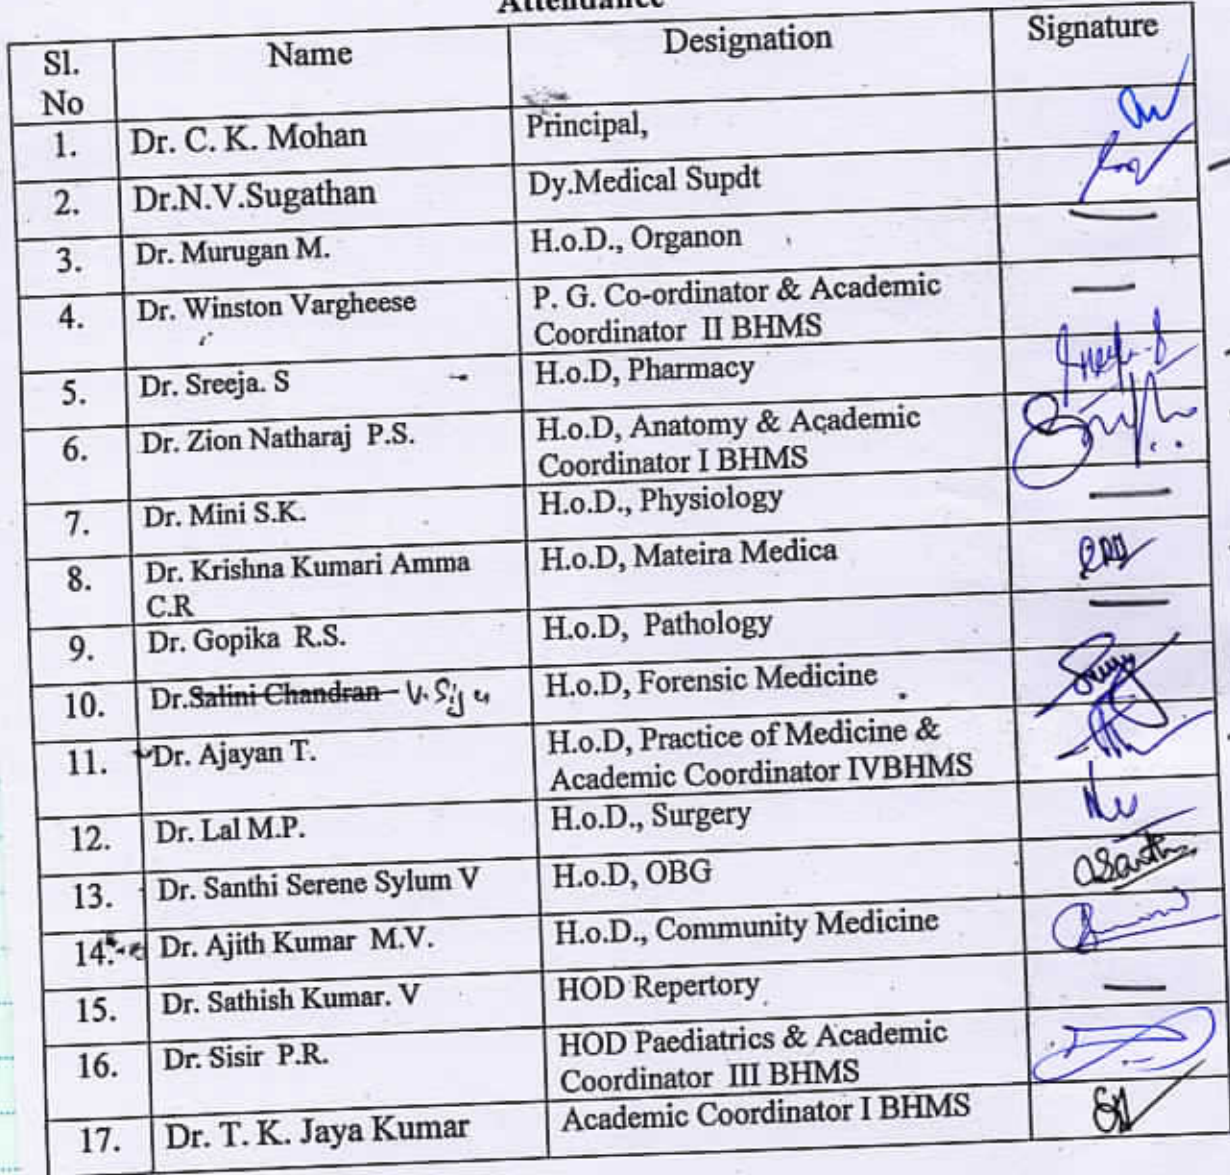 Attendance
Sl. No Name Designation Signature
1. Dr. C. K. Mohan Principal,
2. Dr.N.V.Sugathan Dy.Medical Supdt
3. Dr. Murugan M. H.o.D., Organon
4. Dr. Winston Vargheese P. G. Co-ordinator & Academic
Coordinator II BHMS
5. Dr. Sreeja. S H.o.D, Pharmacy
6. Dr. Zion Natharaj P.S. H.o.D, Anatomy & Academic
Coordinator I BHMS
7. Dr. Mini S.K. H.o.D., Physiology
8. Dr. Krishna Kumari Amma
C.R H.o.D, Mateira Medica
9. Dr. Gopika R.S. H.o.D, Pathology
10. Dr.Salini Chandran H.o.D, Forensic Medicine
11. Dr. Ajayan T. H.o.D, Practice of Medicine &
Academic Coordinator IVBHMS
12. Dr. Lal M.P. H.o.D., Surgery
13. Dr. Santhi Serene Sylum V H.o.D, OBG
14. Dr. Ajith Kumar M.V. H.o.D., Community Medicine
15. Dr. Sathish Kumar. V HOD Repertory
16. Dr. Sisir P.R. HOD Paediatrics & Academic
Coordinator III BHMS
17. Dr. T. K. Jaya Kumar Academic Coordinator I BHMS